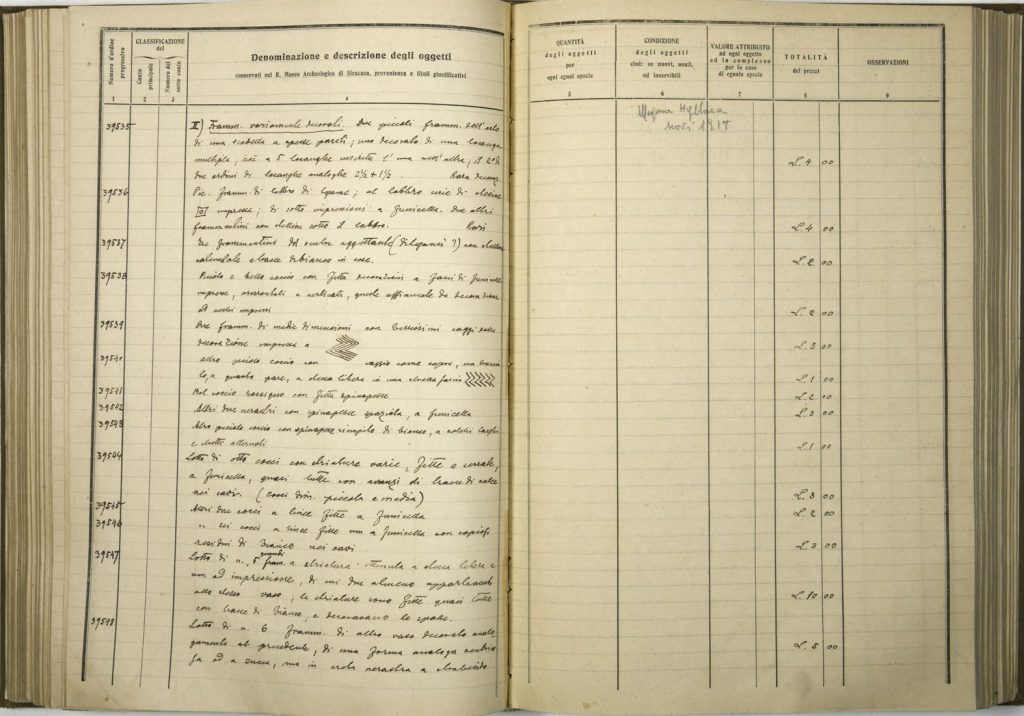 Numero d'ordine progressivo
CLASSIFICAZIONE del
Conto principale
Numero del sotto conto
Denominazione e descrizione degli oggetti
conservati nel R. Museo Archeologico di Siracusa, provenienza e titoli giustificativi
1 2 3 4
39535 II) Framm. variamente decorati. Due piccoli framm. dell'orlo
di una scodella a spesse pareti; uno decorato di una losanga
multipla, cioè a 5 losanghe inscritte l'una nell'altra; il 2° di
due ordini di losanghe analoghe 2½ + 1½ Rara
39536 Pic. framm. di labbro di; al labbro serie di
impresse; di sotto impressioni a funicella. Due altri
frammentini con sotto il labbro.
39537 Tre frammentini (?) con
e tracce di bianco in esse.
39538 Piccolo e bello coccio con fitta decorazioni a fasci di funicelle
impresse, orizzontali e verticali, quelle affiancate da decorazione
ad impressi
39539 Due framm. di medie dimensioni con bellissimi saggi della
decorazione impressa a
39540 altro piccolo coccio con saggio come sopra, ma
a quanto pare, a stecca libera in una stretta fascia
39541 Bel coccio rossigno con fitta spinapesce
39542 Altri due nerastri con spinapesce spaziata, a funicella
39543 Altro piccolo coccio con spinapesce riempito di bianco, a solchi larghi
e stretti alternati
39544 Lotto di otto cocci con striature varie, fitte o serrate,
a funicella, quasi tutte con avanzi di tracce di calce
nei cavi. (cocci dim. piccola e media)
39545 Altri due cocci a linee fitte a funicella
39546 " sei cocci a linee fitte non a funicella con copiosi
residui di bianco nei cavi
39547 Lotto di n. 5 grandi fram. a striatura ottenuta a stecca libera e
non ad impressione, di cui due almeno appartenenti
allo stesso vaso; le striature sono fitte quasi tutte
con tracce di bianco, e decoravano le spalle.
39548 Lotto di n. 6 framm. di altro vaso decorato analo-
gamente al precedente, di una forma analoga
ad a zucca, ma in creta nerastra a
QUANTITÀ degli oggetti per ogni egual specie
CONDIZIONE degli oggetti cioè: se nuovi, usati, od inservibili
VALORE ATTRIBUITO ad ogni oggetto ed in complesso per le cose di eguale specie
TOTALITÀ dei prezzi
OSSERVAZIONI
5 6 7 8 9
Megara Hyblaea
1917
L. 4 00
L. 4 00
L. 2 00
L. 2 00
L. 5 00
L. 1 00
L. 2 00
L. 3 00
L. 1 00
L. 3 00
L. 2 00
L. 3 00
L. 10 00
L. 5 00